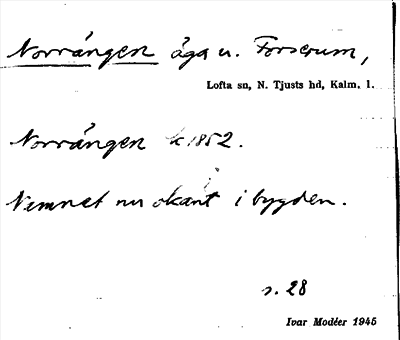 Norrängen äga u. Forserum,
Lofta sn, N. Tjusts hd, Kalm. l.
Norrängen k 1852.
Nämnet nu okänt i bygden.
s. 28
Ivar Modéer 1945